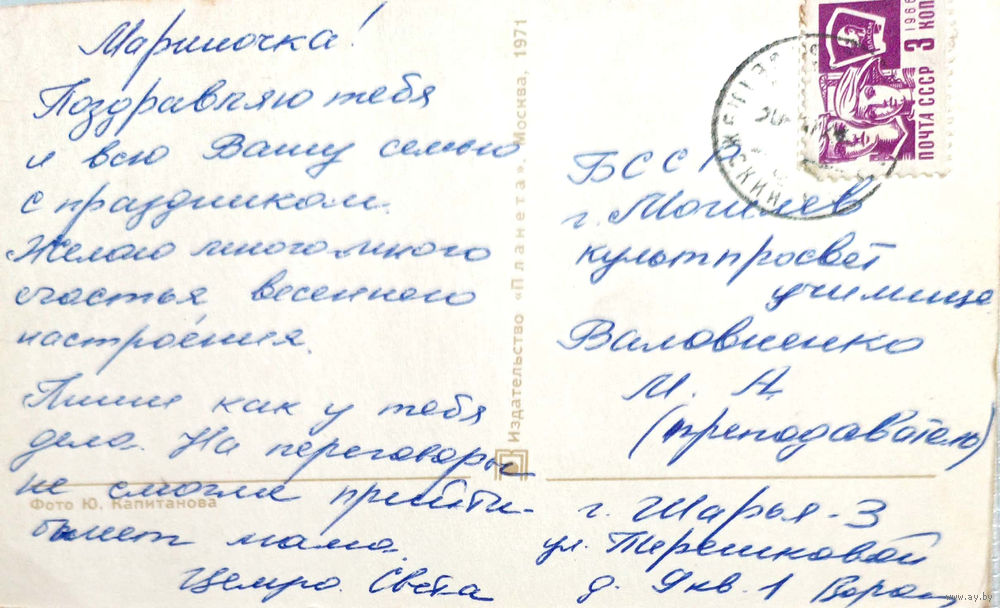 Мариночка!
Поздравляю тебя
и всю Вашу семью
с праздником.
Желаю много много
счастья весеннего
настроения.
Пиши как у тебя
дела. На переговоры
не смогла прийти-
болеет мама.
Целую. Света
Фото Ю. Капитанова
Издательство «Планета». Москва, 1971
1966
3 КОП
ПОЧТА СССР
БССР
г. Могилев
культпросвет
училище
Валовненко
М. А
(преподаватель)
г. Шарья-3
ул. Терешковой
д. 9 кв. 1
www.ay.by